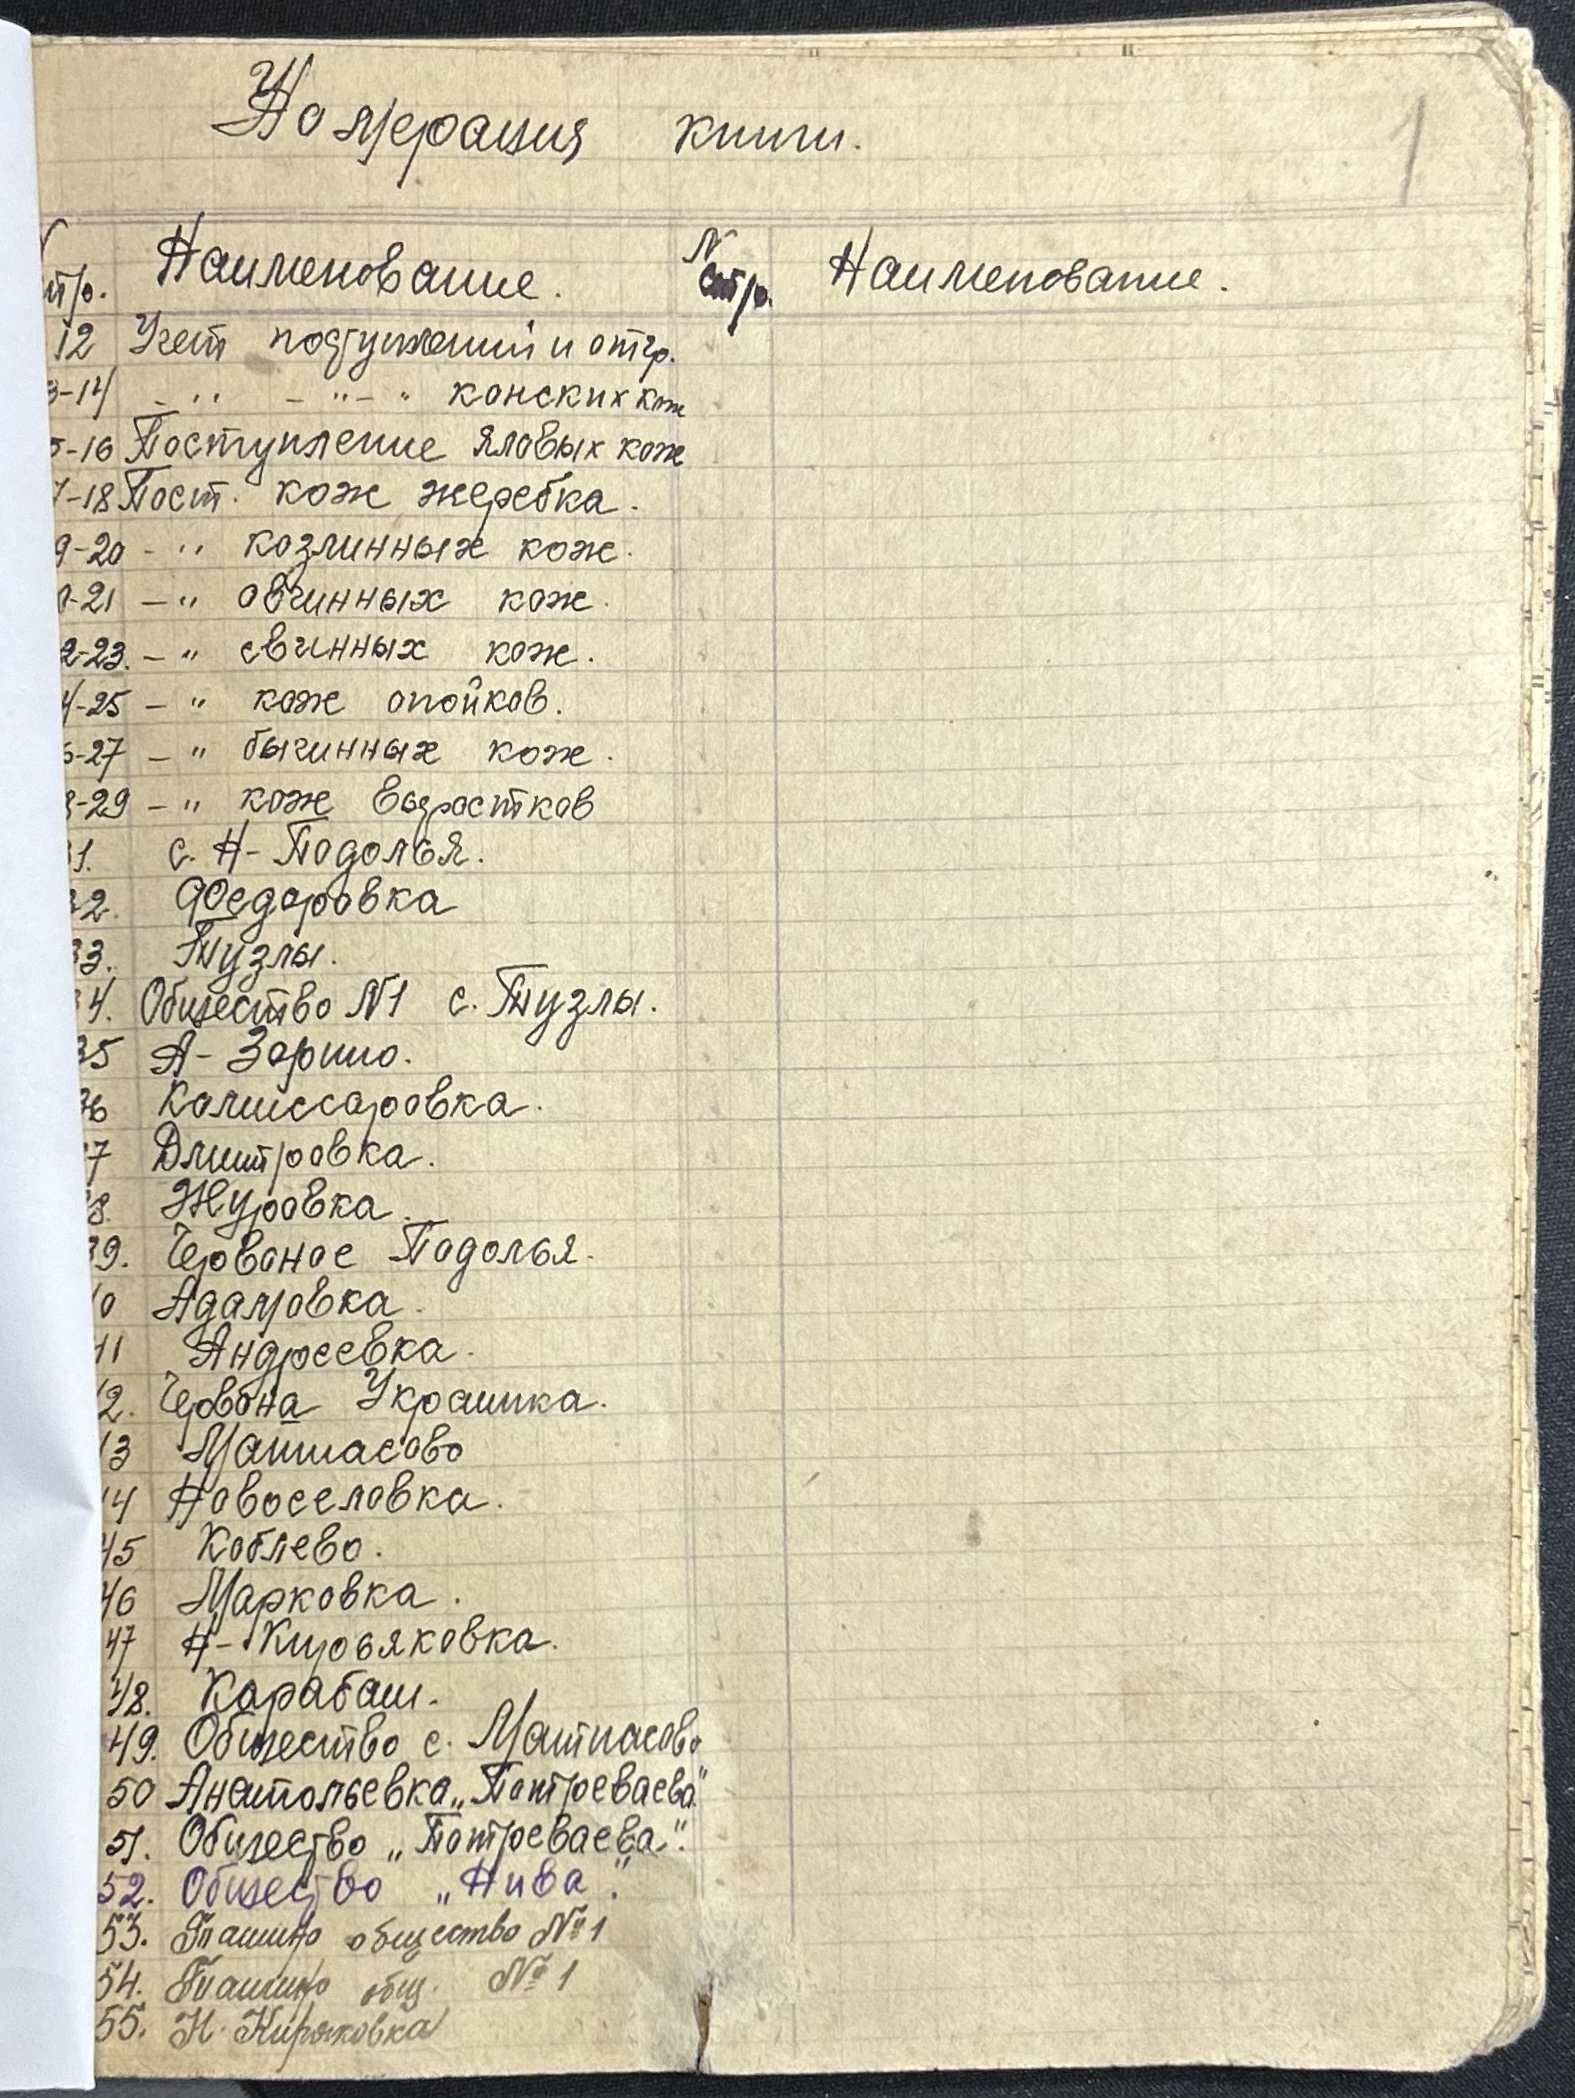 Номерация книги.
1
N стр. Наименование. N стр. Наименование.
12 Учет поступлений и отгр.
3-14 - " - " - " конских кож
5-16 Поступление яловых кож
7-18 Пост. кож жеребка.
9-20 - " козлинных кож.
0-21 - " овчинных кож.
2-23. - " свинных кож.
4-25 - " кож опойков.
6-27 - " бычинных кож.
8-29 - " кож выростков
31. с. Н-Подолья.
32. Федоровка
33. Тузлы.
34. Общество N1 с. Тузлы.
35 А-Зорино.
36 Комиссаровка.
37 Дмитровка.
38. Журовка.
39. Червоное Подолья.
40 Адамовка.
41 Андреевка.
42. Червона Украинка.
43 Матиасово
44 Новоселовка.
45 Коблево.
46 Марковка.
47 Н-Кирьяковка.
48. Карабаш.
49. Общество с. Матиасово
50 Анатольевка „Потреваева"
51. Общество „Потреваева".
52. Общество „Нива".
53. Ташино общество № 1
54. Ташино общ. № 1
55. Н. Киряковка